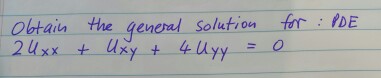 Obtain the general solution for : PDE
2Uxx + Uxy + 4Uyy = 0